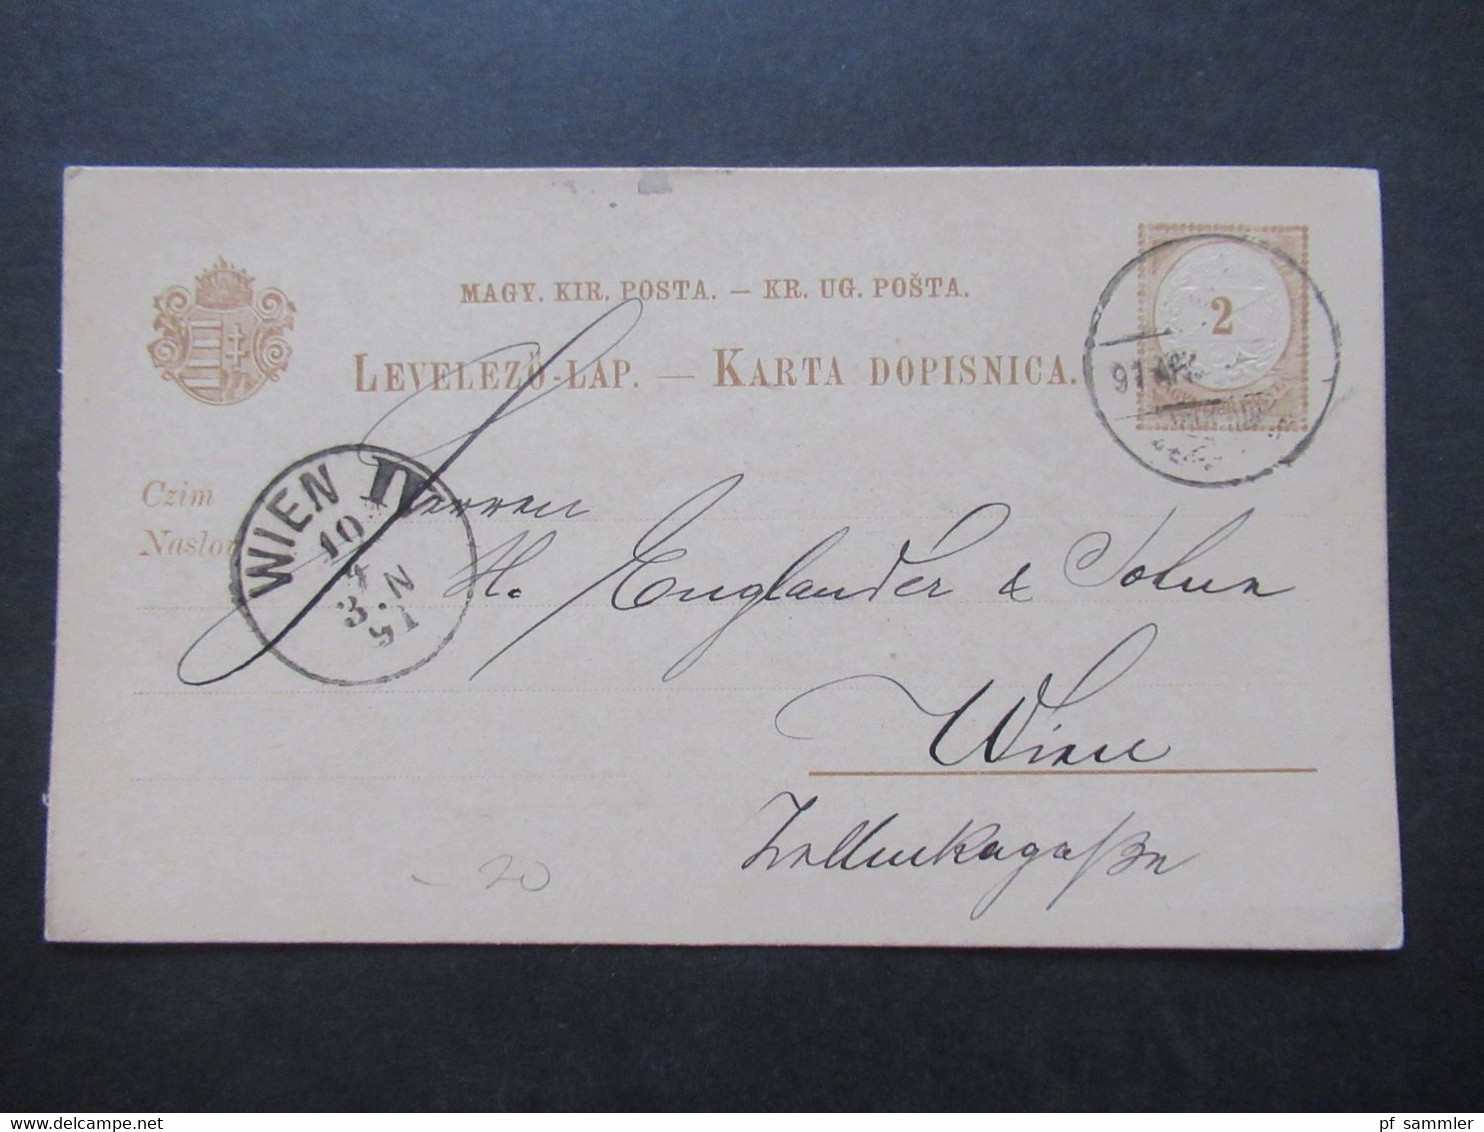 MAGY. KIR. POSTA. — KR. UG. POŠTA.
LEVELEZŐ-LAP. — KARTA DOPISNICA.
2
91 APR
WIEN IV
10
4
3.N
91
Czim
Naslov
Herren
H. Engländer & Sohn
Wien
20
pf_sammler